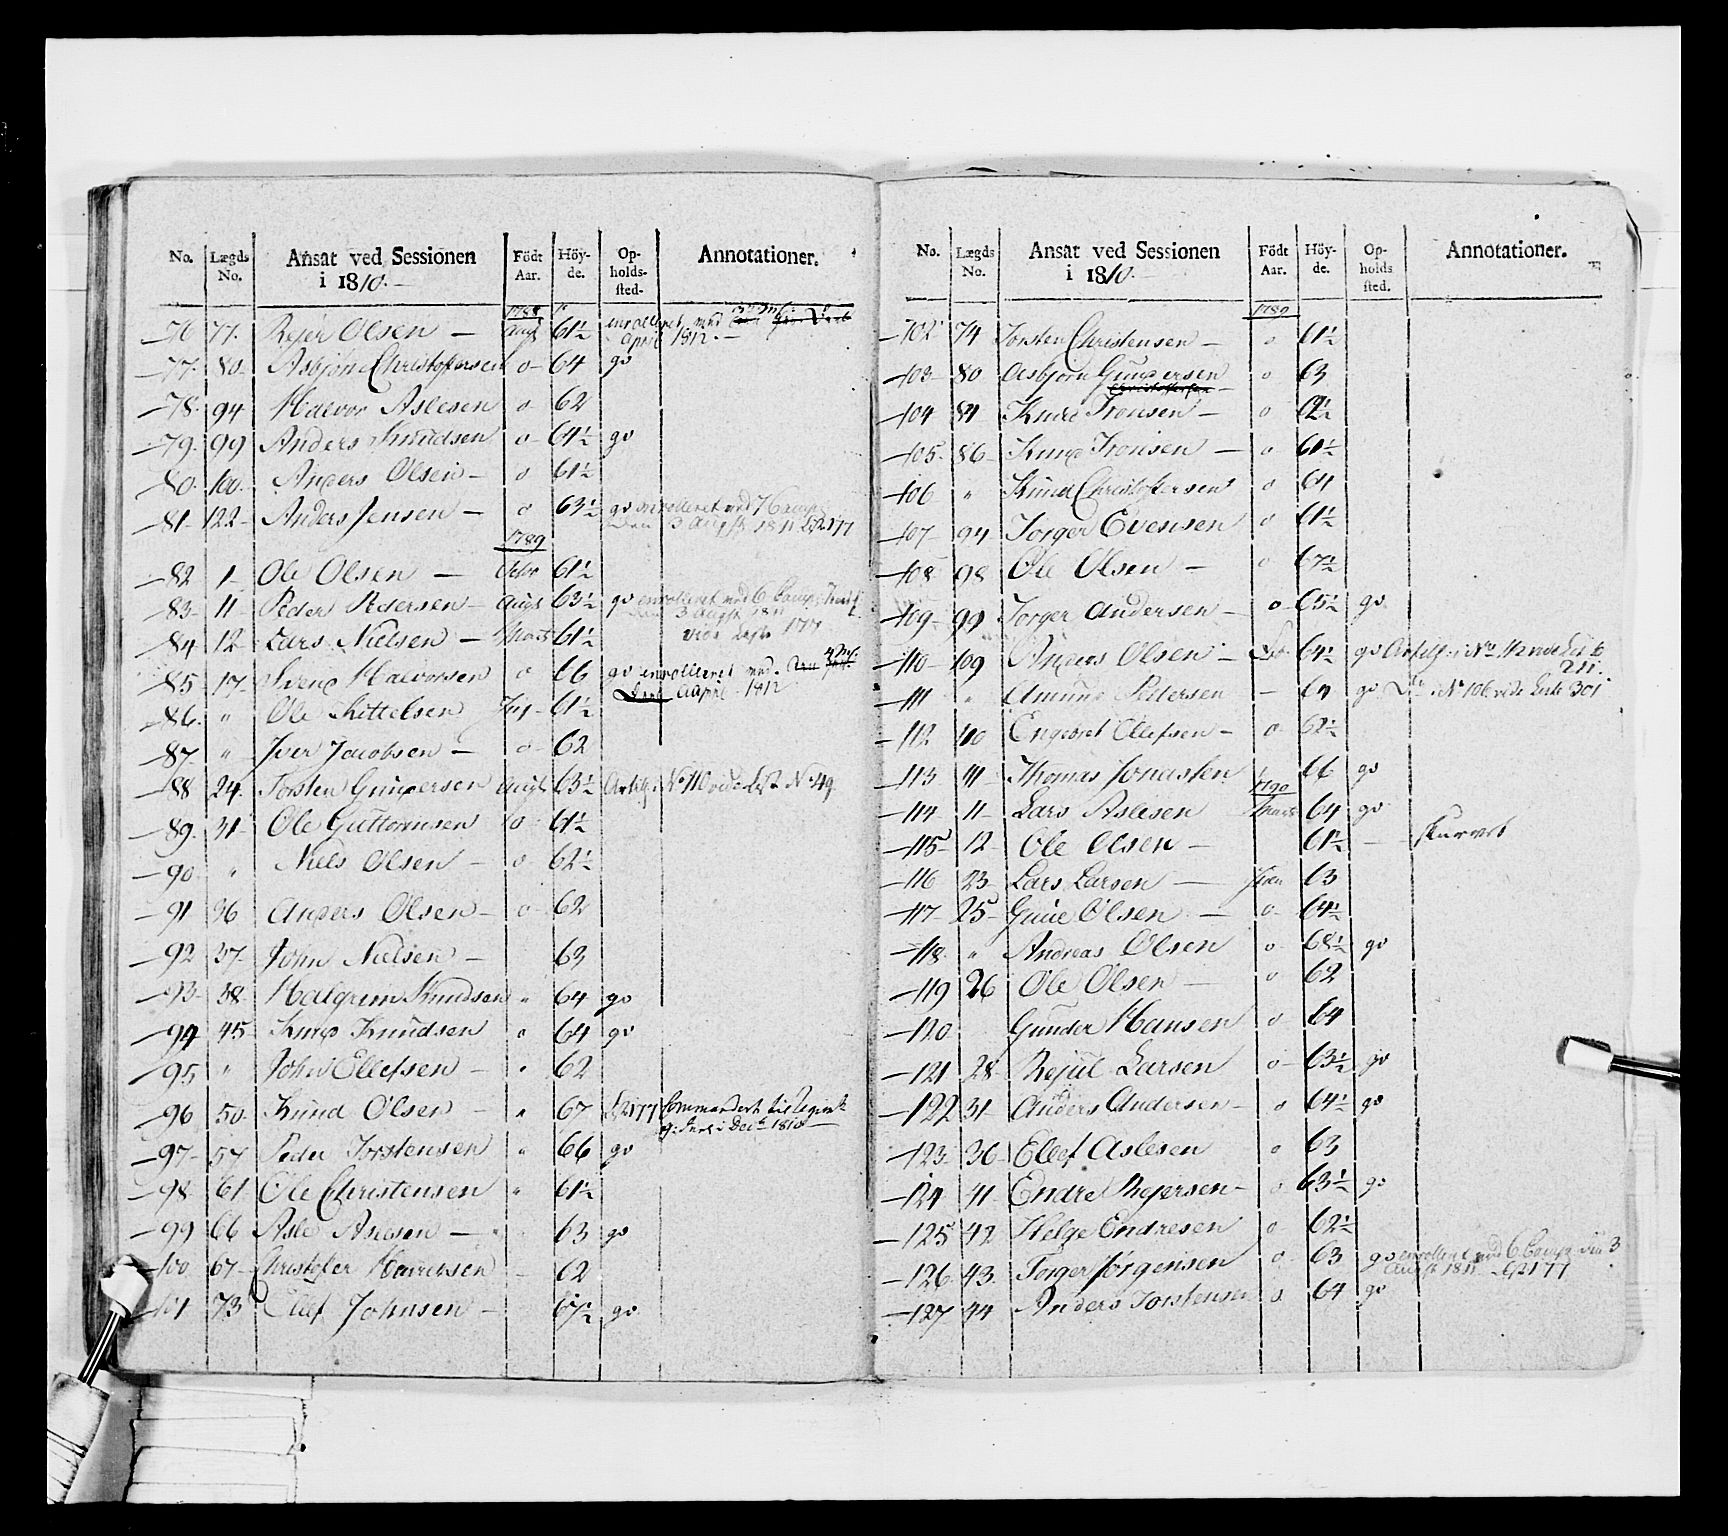 No. Lægds No. Ansat ved Sessionen i 1810. Födt Aar. Höyde. Opholdssted. Annotationer.
1788
76 77. Rejer Olsen — Augt 61½ enrolleret med
April 1812. —
77. 80 Asbjörn Christofersen o 64 go
78. 94 Halvor Aslesen o 62
79. 99 Anders Knudsen o 64½ go
80. 100. Anders Olsen — o 61½
81 122 Anders Jensen — o 63½ go enrolleret ved 7 Comp:
den 3 Augst 1811 L 2177
1789
82 1 Ole Olsen — 61½
83 11 Peder Pedersen — Augt 63½ go enrolleret ved 6 Comp:
den 3 Augst 1811
84 12 Lars Nielsen — Marts 61½ vide Liste 177
85 17 Svend Halvorsen o 66 go enrolleret med
April 1812
86. " Ole Kittelsen 61½
87. " Iver Jacobsen — o 62
88 24. Torsten Gundersen Augt 63½ Artilj: No 110 vide List No 49
89. 31 Ole Guttormsen o 61½
90 " Niels Olsen — o 62½
91 36 Anders Olsen — o 62
92 37 John Nielsen — 63
93 38. Halgrim Knudsen " 64 go
94 45 Knud Knudsen " 64 go
95 " John Ellefsen — " 62
96 50 Knud Olsen — " 67 L 2177 Commandert til
i Decbr 1810 —
97 57 Peder Torstensen " 66 go
98 61 Ole Christensen " 61½
99 66 Asle Aslesen — " 63 go
100 67 Christofer Halvorsen — 62
101 73 Ellef Johnsen — 67½ go
No. Lægds No. Ansat ved Sessionen i 1810. Födt Aar. Höyde. Opholdssted. Annotationer.
1789
102 74 Torsten Christensen — o 61½
103 80 Asbjörn Gundersen o 63
Christophersen
104 84 Knud Tronsen — o 62½
105 86 Knud Tronsen — o 61½
106 " Knud Christofersen o 64
107 94 Torger Evensen o 61½
108 98 Ole Olsen — o 67½
109 99 Torger Andersen — o 65½ go
110 109 Anders Olsen — 64½ go Artilj: No 112 vide List
211.
111 " Amund Pedersen — 64 go No 106 vide Liste 301
112 110 Engebret Ellefsen — o 62½
113 111 Thomas Jonassen 66 go
1790
114 11 Lars Aslesen Marts 64 go
115 12 Ole Olsen — 61½ — skurvet
116 23 Lars Larsen — 63
117 25 Gude Olsen — o 64½
118 " Andreas Olsen o 68½ go
119 26 Ole Olsen — o 62
120 Gunder Hansen o 64
121 28 Rejul Larsen o 63½ go
122 31 Anders Andersen — o 64½ go
123 36 Ellef Aslesen o 63
124 41 Endre Rejersen — o 63½ go
125 42 Helge Endresen o 62½
126 43 Torger Jörgensen o 63 go enrolleret ved 6 Comp: den 3
Augst 1811 L 2177
127 44 Anders Torstensen o 64 go